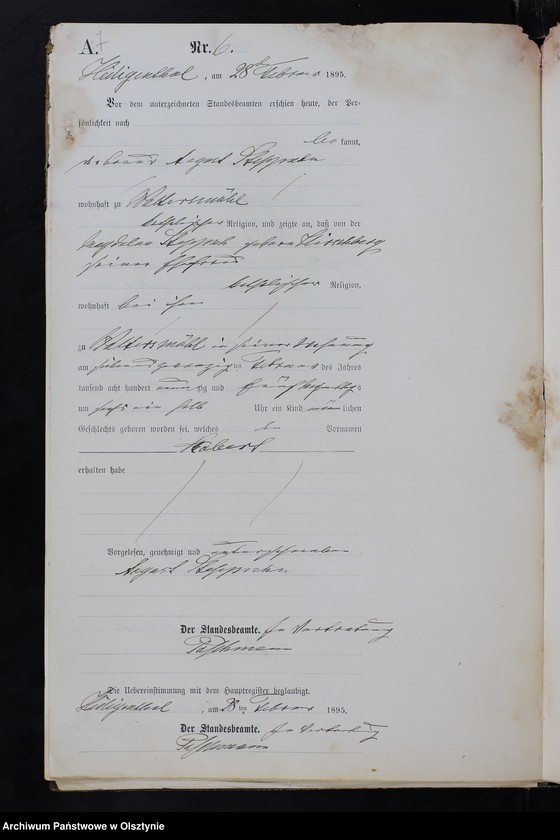 A. 7 Nr. 6.
Heiligenthal, am 28ten Februar 1895.
Vor dem unterzeichneten Standesbeamten erschien heute, der Per-
sönlichkeit nach
be kannt,
der Bauer August
wohnhaft zu Waltersmühl
katholischer Religion, und zeigte an, daß von der
geborene Hirschberg
seiner Ehefrau
katholischer Religion,
wohnhaft bei ihm
zu Waltersmühl in seiner Wohnung
am sieben und zwanzigsten Februar des Jahres
tausend acht hundert neunzig und fünf Nachmittags
um sechs ein halb Uhr ein Kind männlichen
Geschlechts geboren worden sei, welches den Vornamen
Robert
erhalten habe
Vorgelesen, genehmigt und unterschrieben
August
Der Standesbeamte. In Vertretung
Die Uebereinstimmung mit dem Hauptregister beglaubigt.
Heiligenthal, am 28ten Februar 1895.
Der Standesbeamte. In Vertretung
Archiwum Państwowe w Olsztynie